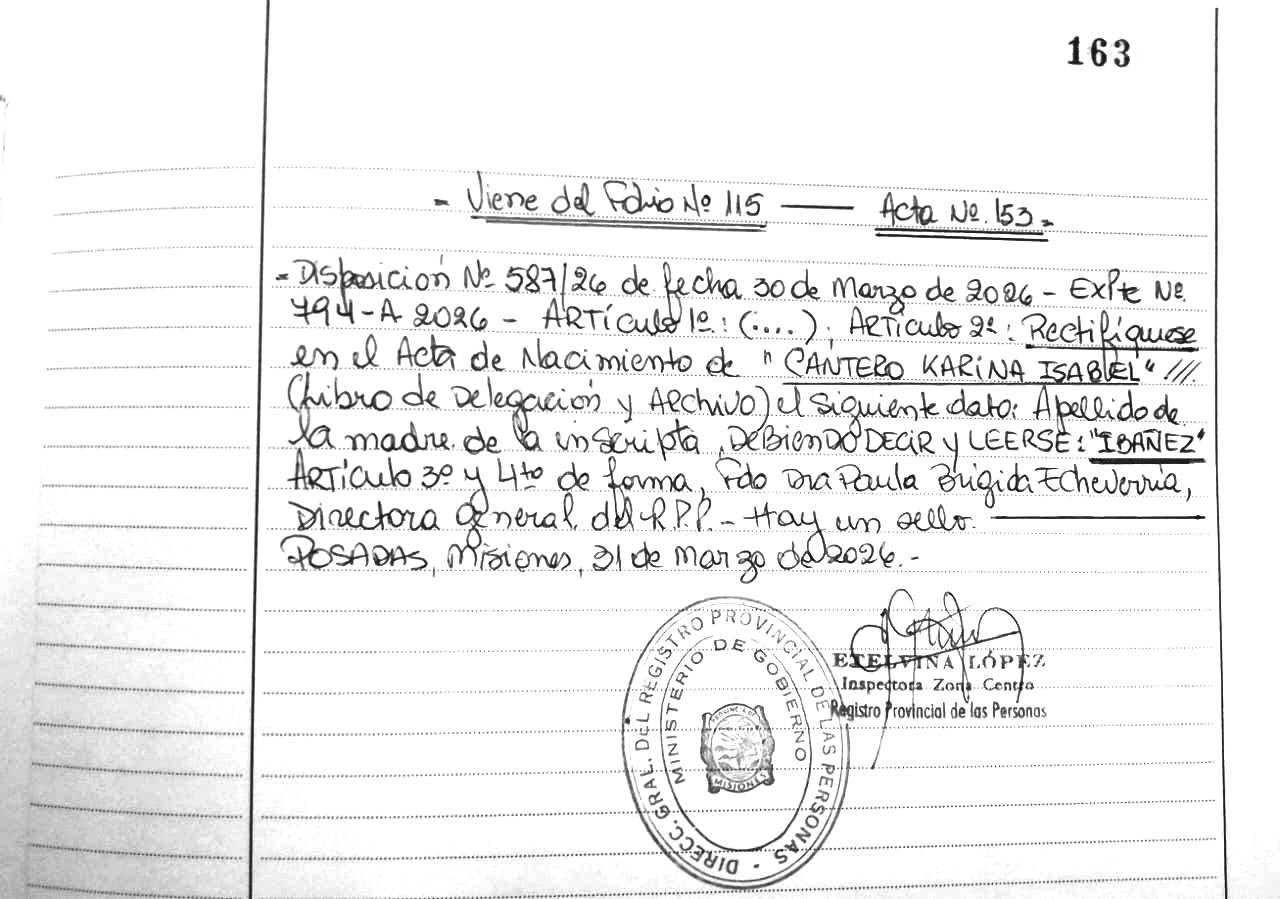 163
- Viene del Folio Nº 115 —— Acta Nº 153 -
- Disposición Nº 587/26 de fecha 30 de Marzo de 2026 - Expte Nº
794-A 2026 - ARTÍCULO 1º: (....). ARTÍCULO 2º: Rectifíquese
en el Acta de Nacimiento de "CANTERO KARINA ISABEL" ///.
(Libro de Delegación y Archivo) el siguiente dato: Apellido de
la madre de la inscripta, DEBIENDO DECIR y LEERSE: "IBAÑEZ"
ARTÍCULO 3º y 4to de forma, Fdo Dra Paula Brigida Echeverria,
Directora General del R.P.P. - Hay un sello. ——
POSADAS, Misiones, 31 de Marzo de 2026.-
DIRECC. GRAL. DEL REGISTRO PROVINCIAL DE LAS PERSONAS -
MINISTERIO DE GOBIERNO
MISIONES
ETELVINA LÓPEZ
Inspectora Zona Centro
Registro Provincial de las Personas